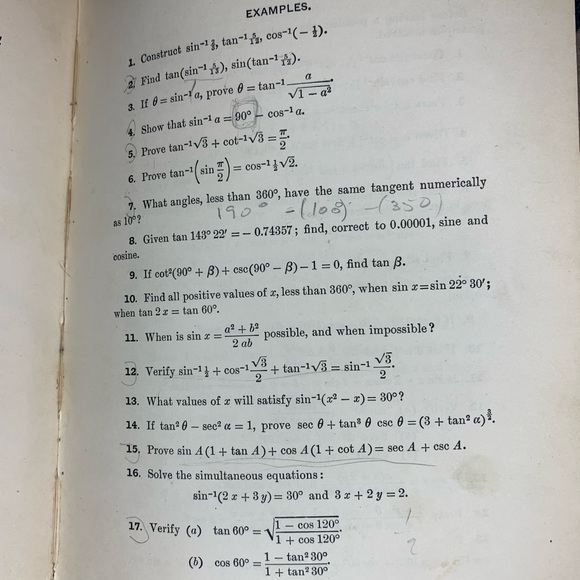 EXAMPLES.
1. Construct sin⁻¹ ⅔, tan⁻¹ 5/12, cos⁻¹(− ½).
2. Find tan(sin⁻¹ 5/13), sin(tan⁻¹ 5/12).
3. If θ = sin⁻¹ a, prove θ = tan⁻¹ a/√(1 − a²).
4. Show that sin⁻¹ a = 90° − cos⁻¹ a.
5. Prove tan⁻¹√3 + cot⁻¹√3 = π/2.
6. Prove tan⁻¹(sin π/2) = cos⁻¹ ½√2.
7. What angles, less than 360°, have the same tangent numerically
as 10°?
190° -(108) -(350)
8. Given tan 143° 22′ = − 0.74357; find, correct to 0.00001, sine and
cosine.
9. If cot²(90° + β) + csc(90° − β) − 1 = 0, find tan β.
10. Find all positive values of x, less than 360°, when sin x = sin 22° 30′;
when tan 2 x = tan 60°.
11. When is sin x = (a² + b²)/2 ab possible, and when impossible?
12. Verify sin⁻¹ ½ + cos⁻¹ √3/2 + tan⁻¹√3 = sin⁻¹ √3/2.
13. What values of x will satisfy sin⁻¹(x² − x) = 30°?
14. If tan² θ − sec² α = 1, prove sec θ + tan³ θ csc θ = (3 + tan² α)^(3/2).
15. Prove sin A (1 + tan A) + cos A (1 + cot A) = sec A + csc A.
16. Solve the simultaneous equations:
sin⁻¹(2 x + 3 y) = 30° and 3 x + 2 y = 2.
17. Verify (a) tan 60° = √((1 − cos 120°)/(1 + cos 120°)).
(b) cos 60° = (1 − tan² 30°)/(1 + tan² 30°).